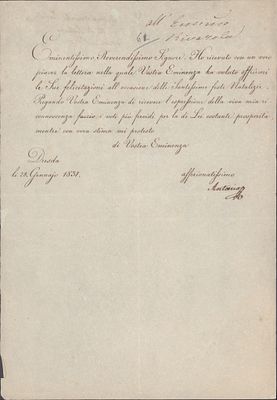 all' Eminmo
Rivarola
Eminentissimo, Reverendissimo Signore. Ho ricevuto con un vero
piacere la lettera nella quale Vostra Eminenza ha voluto offrirmi
le Sue felicitazioni all'occasione delle Santissime feste Natalizie.
Pregando Vostra Eminenza di ricevere l'espressione della viva mia ri-
conoscenza faccio i voti più fervidi per la di Lei costante prosperità
mentre con vera stima mi protesto
di Vostra Eminenza
Dresda
le 28. Gennajo 1831.
affezionatissimo
Antonio